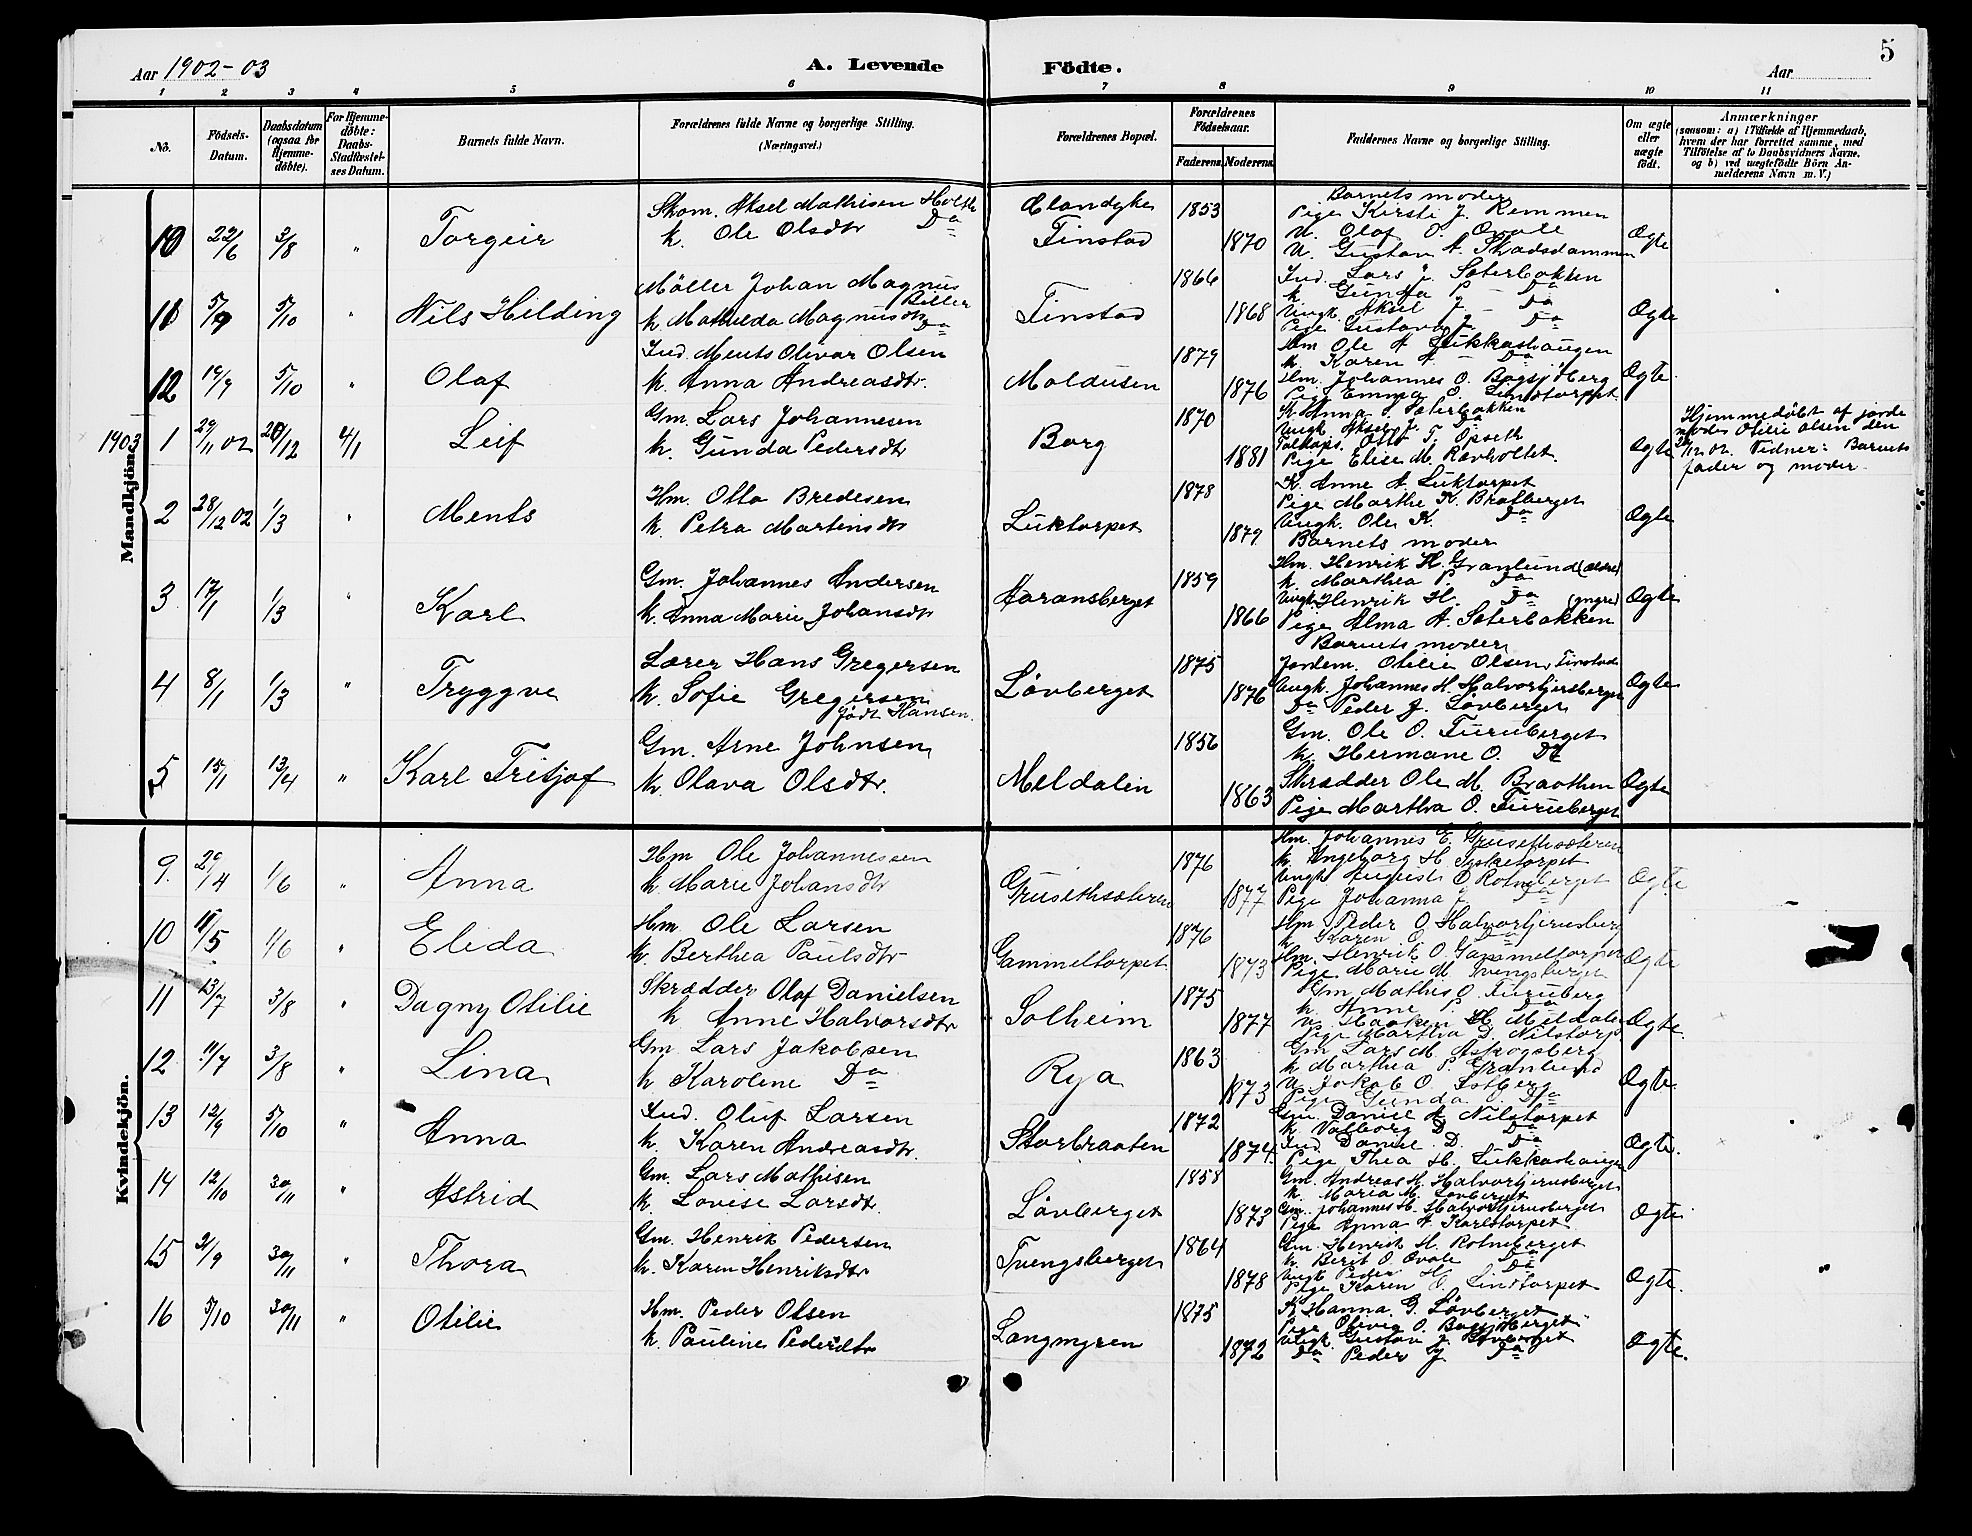 Aar 1902-03
A. Levende Födte.
Aar
5
1 2 3 4 5 6 7 8 9 10 11
No.
Födsels-Datum.
Daabsdatum (ogsaa for Hjemme-døbte).
For Hjemme-døbte: Daabs-Stadfæstel-ses Datum.
Barnets fulde Navn.
Forældrenes fulde Navne og borgerlige Stilling. (Næringsvei.)
Forældrenes Bopæl.
Forældrenes Födselsaar.
Faderens. Moderens.
Faddernes Navne og borgerlige Stilling.
Om ægte eller uægte födt.
Anmærkninger
(saasom: a) i Tilfælde af Hjemmedaab, hvem der har forrettet samme, med Tilföielse af to Daabsvidners Navne, og b) ved uægtefödte Börn An-melderens Navn m. V.)
Mandkjön.
10 22/6 3/8 " Torgeir
Skom. Aksel Mathisen Holth
k. Ole Olsdtr Do
Finstad
1853 1870
Barnets moder
Pige Kirsti J. Remmen
U. Olaf O. Ovale
U. Gustav A. Skadsdammen
Ægte
11 5/9 5/10 " Nils Hilding
Møller Johan Magnus Biller
k. Mathilda Magnusdtr Do
Finstad
1866 1868
Ind. Lars J. Sæterbakken
k. Gunda P. Do
Ungk. Aksel J. Do
Pige Gustava J. Do
Ægte
12 19/9 5/10 " Olaf
Ind. Ments Olivar Olsen
k. Anna Andreasdtr.
Maldusen
1879 1876
Hm Ole A Lukkashaugen
k. Karen A. Do
Hm. Johannes O. Bogsjøberg
Pige Emma O. Lindtorpet.
Ægte.
1903
1 29/11 02 20/12 4/1 Leif
Gm. Lars Johannesen
k. Gunda Pedersdtr
Borg
1870 1881
K. Anna P. Sæterbakken
Ungk. Aksel J. Do
Falkaps. Otto T. Opseth
Pige Elise M. Ravholtet.
Ægte
Hjemmedøbt af jorde
moder Otilie Olsen den
20/12 02. Vidner: Barnets
fader og moder.
2 28/12 02 1/3 " Ments
Hm. Otto Bredesen
k. Petra Martinsdtr
Luktorpet
1878 1879
K. Anne A. Luktorpet
Pige Marthe K. Bratberget
Ungk. Ole K. Do
Barnets moder
Ægte
3 17/1 1/3 " Karl
Gm. Johannes Andersen
k. Anna Marie Johansdtr
Aaransberget
1859 1866
Hm. Henrik H. Granlund (ældre)
k. Marthea P. Do
Ungk. Henrik H. Do (yngre)
Pige Alma A. Sæterbakken
Ægte
4 8/1 1/3 " Tryggve
Lærer Hans Gregersen
k. Sofie Gregersen
født Hansen.
Løvberget
1875 1876
Barnets moder
Jordem. Otilie Olsen, Finstad
Ungk. Johannes H. Halvorhjersberget
Do Peder J. Løvberget
Ægte
5 15/1 13/4 " Karl Fritjof
Gm. Arne Johnsen
k. Olava Olsdtr.
Meldalen
1856 1863
Gm. Ole O. Furuberget
k. Hermane O. Do
Skrædder Ole M. Braathen
Pige Martha O. Furuberget
Ægte
Kvindekjön.
9. 29/4 1/6 " Anna
Hm Ole Johannessen
k. Marie Johansdtr
Grusethsæteren
1876 1877
Hm. Johannes E. Grusethsæteren
k. Ingeborg H. Tysketorpet
Ungk August O Rotneberget
Pige Johanna J Do
Ægte
10 18/5 1/6 " Elida
Hm. Ole Larsen
k. Berthea Paulsdtr
Gammeltorpet
1876 1873
Hm Peder O Halvorhjernsberg
k Karen O. Do
Hm. Henrik O. Gammeltorpet
Pige Marie M. Tvengsberget
Ægte
11 13/7 3/8 " Dagny Otilie
Skrædder Olaf Danielsen
k Anne Halvorsdtr
Solheim
1875 1877
Gm Mathis O. Furuberg
k Anne P. Do
U. Haaken H. Meldalen
Pige Martha D. Nilstorp
Ægte.
12 11/7 3/8 " Lina
Gm. Lars Jakobsen
k Karolene Do
Rya
1863 1873
Gm Lars M Askogsberg
k Marthea P. Granlund
U. Jakob O. Estberg
Pige Gunda O. Do
Ægte.
13 12/9 5/10 " Anna
Ind. Oluf Larsen
k. Karen Andreasdtr.
Storbraaten
1872 1874.
Gm. Daniel A Nilstorpet
k Valborg D Do
Ind Daniel D. Do
Pige Thea H. Lukkashaugen
Ægte.
14 12/10 30/11 " Astrid
Gm. Lars Mathisen
k. Lovise Larsdtr.
Løvberget
1858 1873
Gm. Andreas H. Halvorhjernsberget
k. Maria M. Løvberget
Gm. Johannes H. Halvorhjernsberget
Pige Anna A. Karlstorpet.
Ægte
15 21/9 30/11 " Thora
Gm. Henrik Pedersen
k. Karen Henriksdtr
Tvengsberget
1864 1878
Gm. Henrik H. Rotneberget
k. Berit O. Ovale
Ungk Peder H Do
Pige Karen O. Lindtorpet
Ægte.
16 5/10 30/11 " Otilie
Hm. Peder Olsen
k. Pauline Pedersdtr
Langmyren
1875 1872
K Hanna G. Løvberget
Pige Oliveg O. Bogsjøberget.
Ungk Gustav J Løvberget
Do Peder J Do
Ægte.